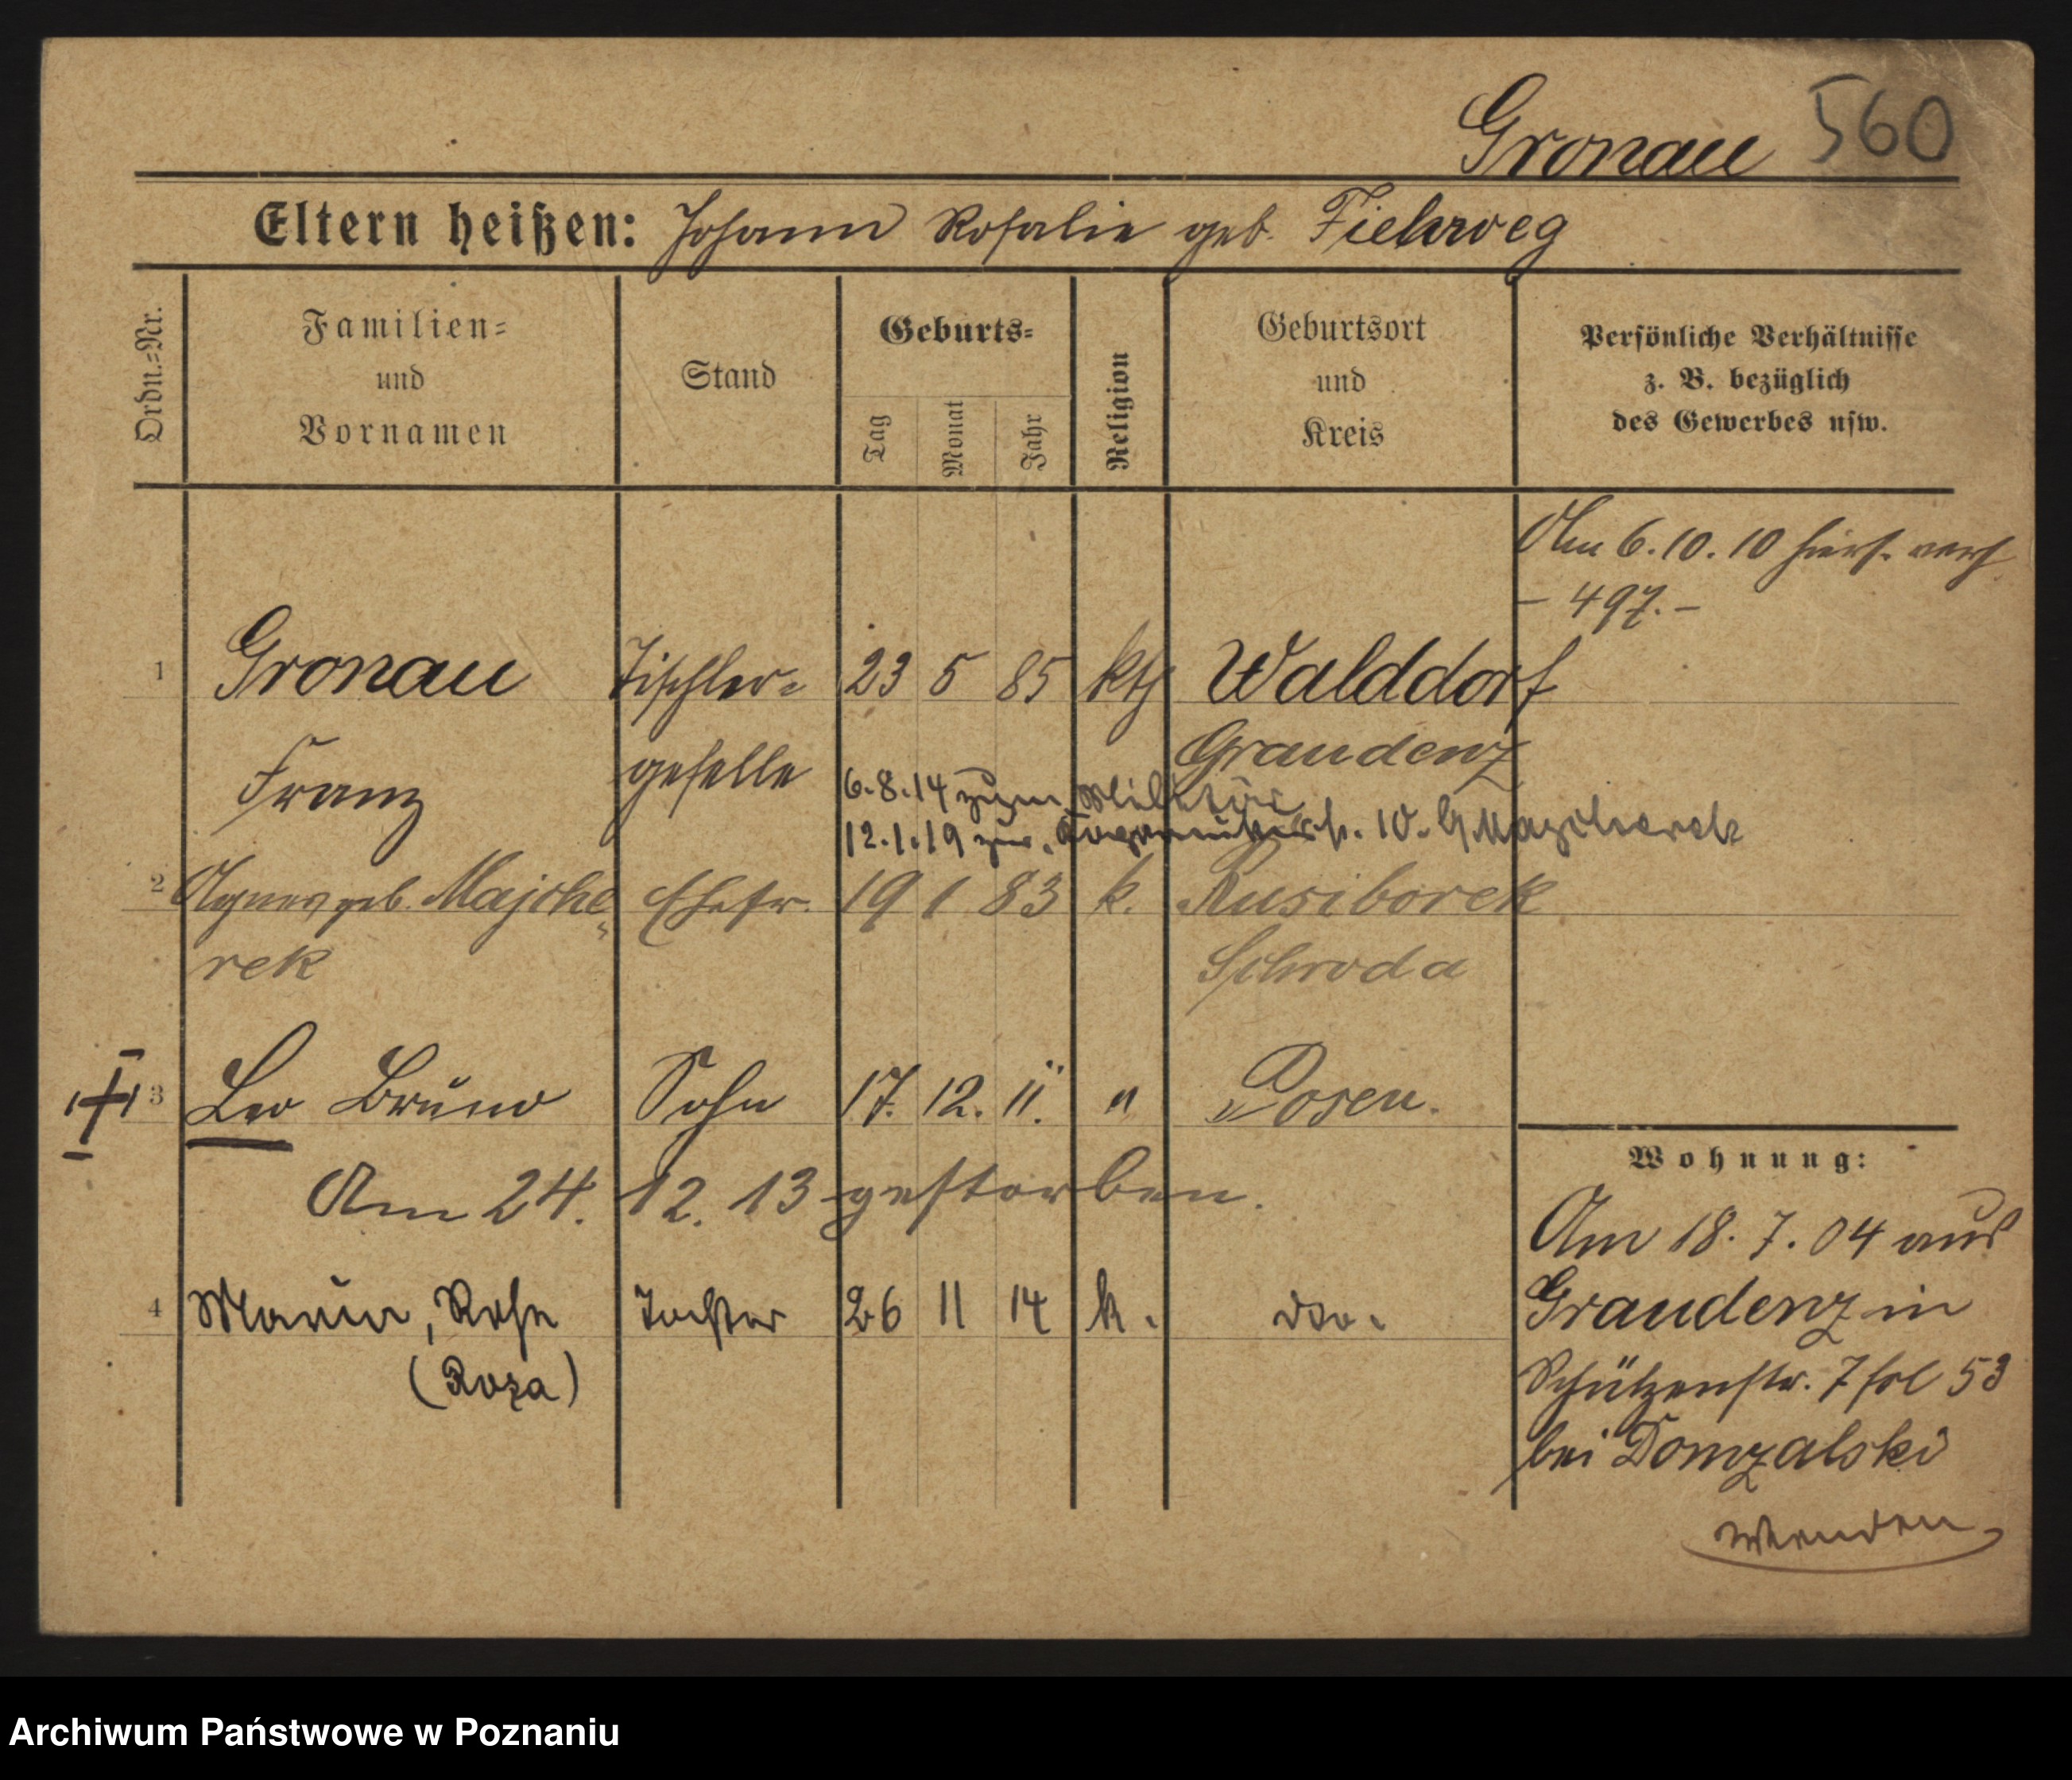 Gronau 560
Eltern heißen: Johann Rosalie geb. Fiehrweg
Ordn.=Nr.
Familien=
und
Vornamen
Stand
Geburts=
Tag
Monat
Jahr
Religion
Geburtsort
und
Kreis
Persönliche Verhältnisse
z. B. bezüglich
des Gewerbes usw.
Am 6.10.10 hiers. verh.
– 497. –
1 Gronau Tischler= 23 5 85 kth Walddorf
Franz geselle Graudenz
6.8.14 zum Militär
12.1.19 zur. 10. G Majcherek
2 Agnes geb. Majche= Ehefr. 19 1 83 k. Rusiborek
rek Schroda
3 Leo Bruno Sohn 17. 12. 11. " Posen.
Am 24. 12. 13 gestorben.
4 Maria, Rosa Tochter 26 11 14 k. do.
(Roza)
Wohnung:
Am 18. 7. 04 aus
Graudenz in
Schützenstr. 7 fol 53
bei Domzalski
Wenden
Archiwum Państwowe w Poznaniu